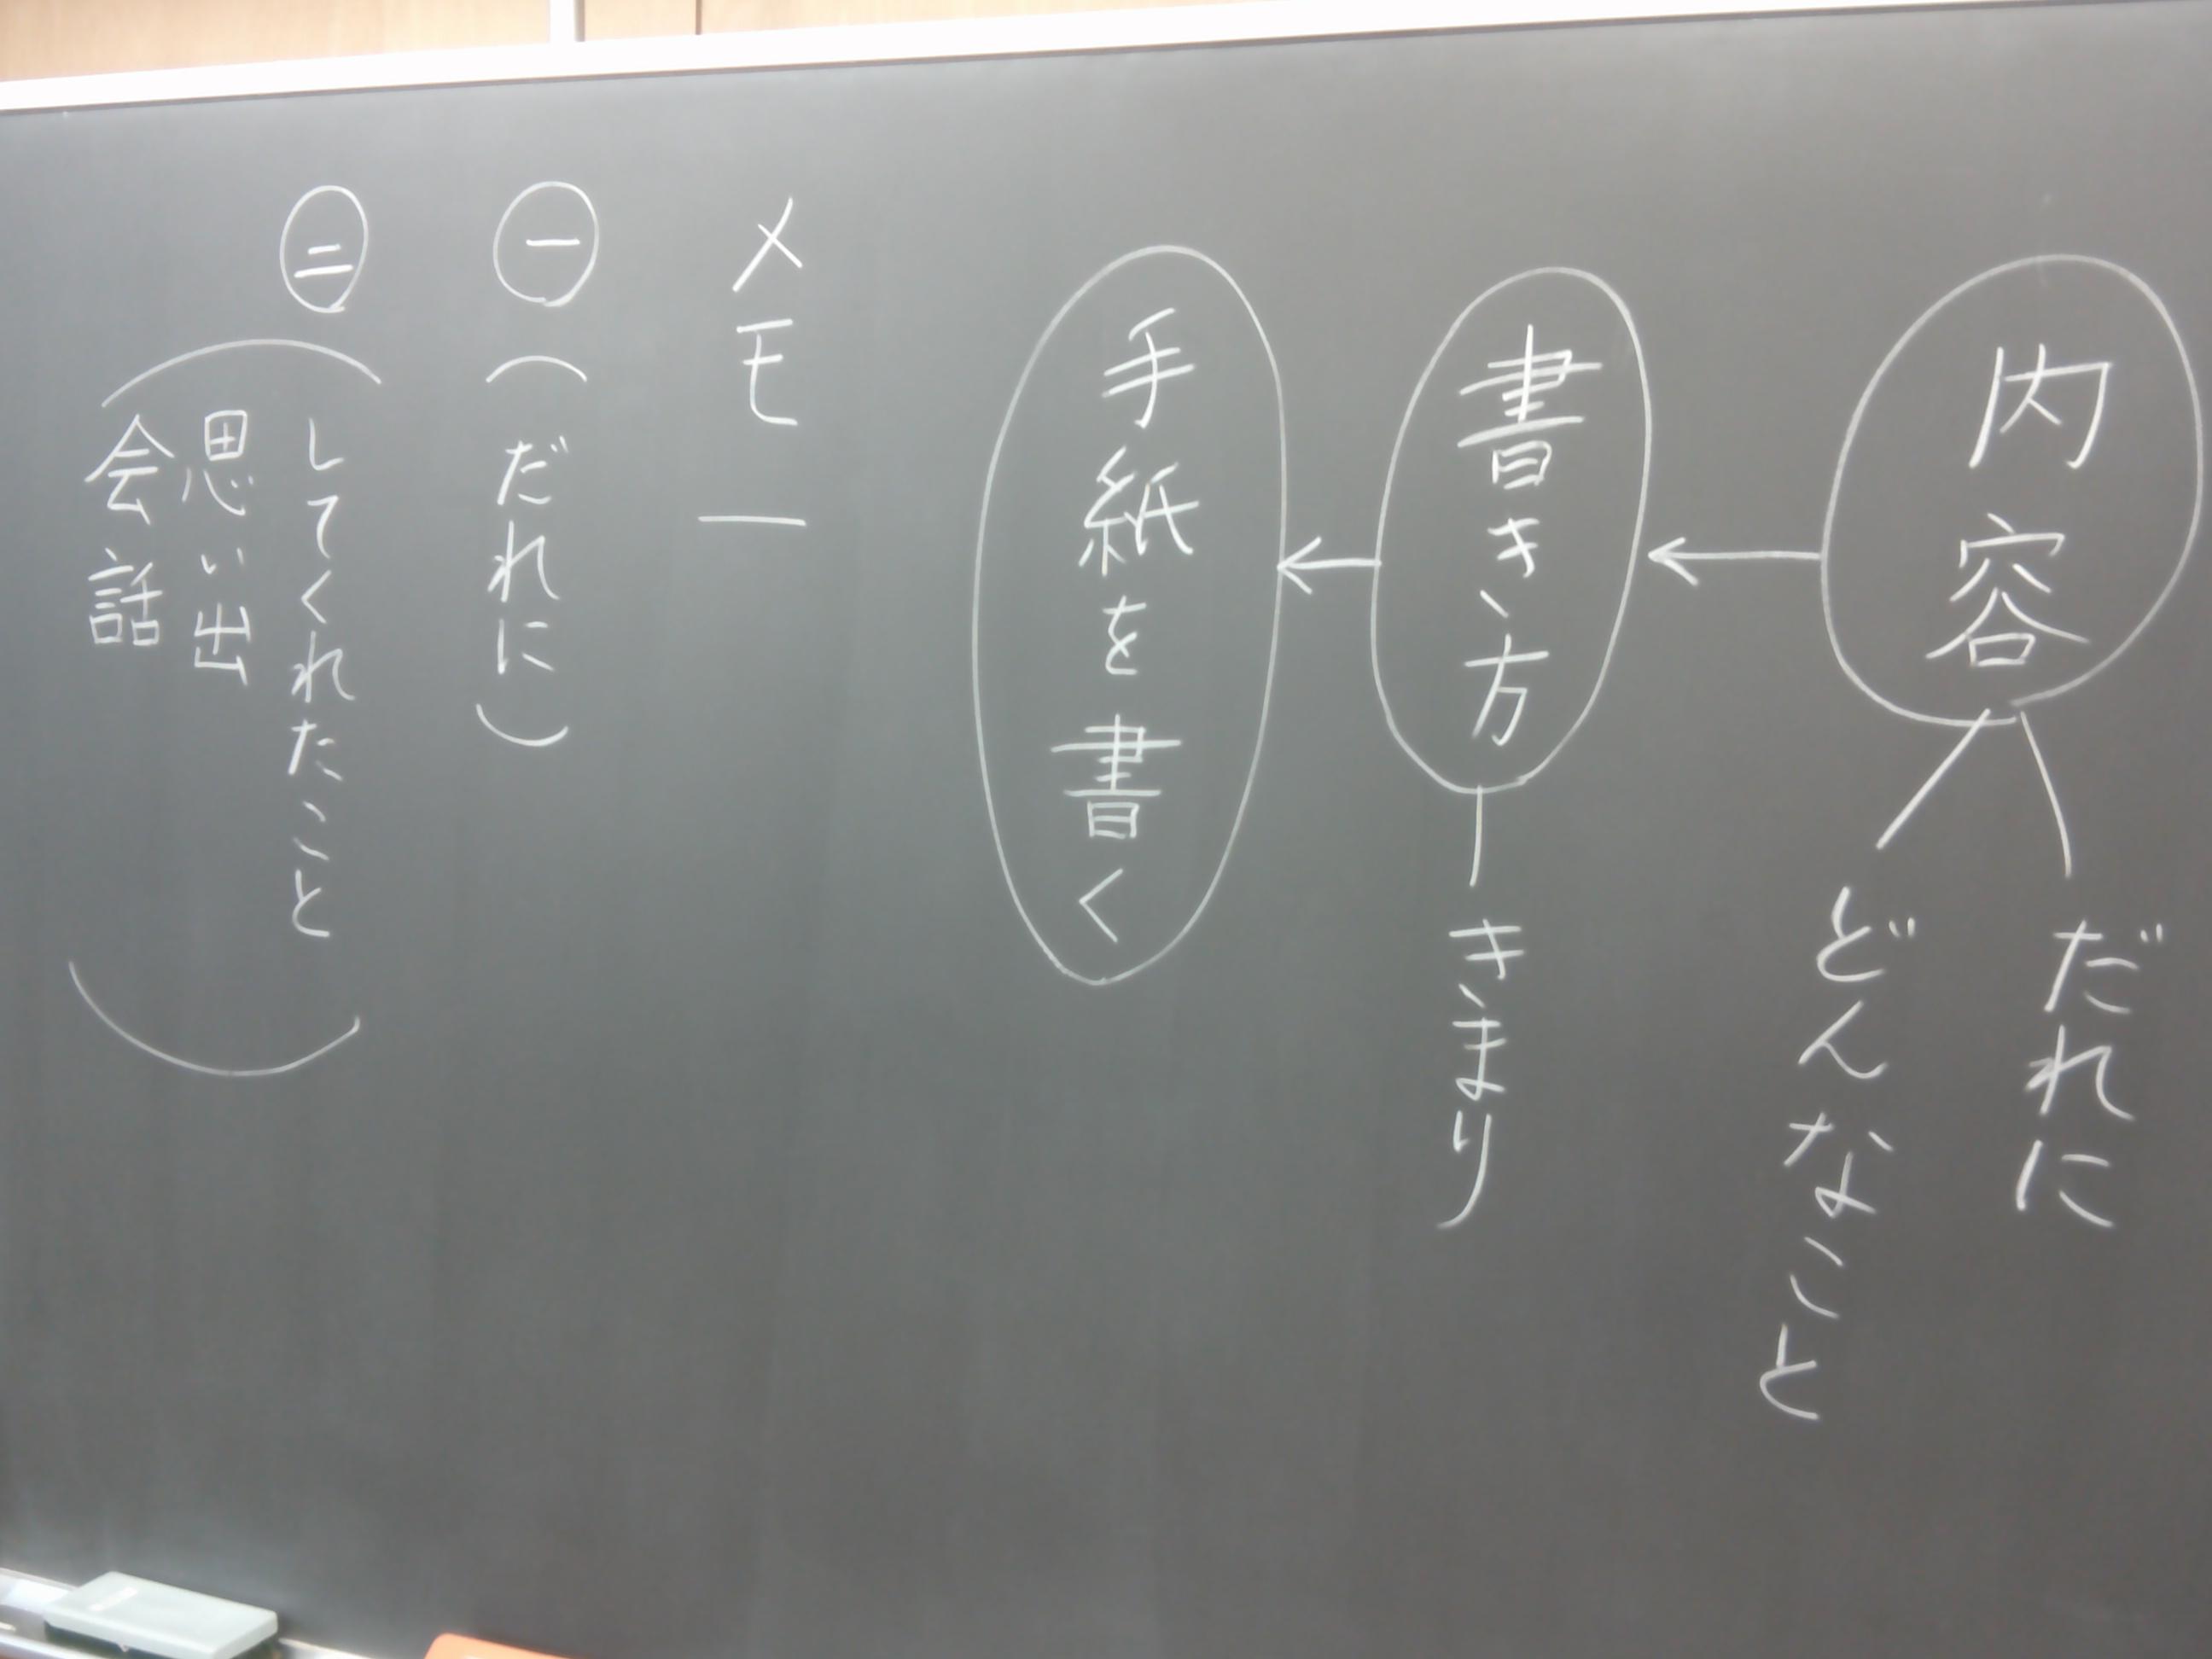 内容
だれに
どんなこと
書き方
きまり
手紙を書く
メモ一
㊀(だれに)
㊁(してくれたこと
思い出
会話)